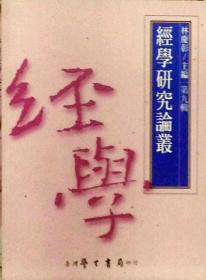 林慶彰／主編 第九輯
經學研究論叢
經學
臺灣學生書局印行